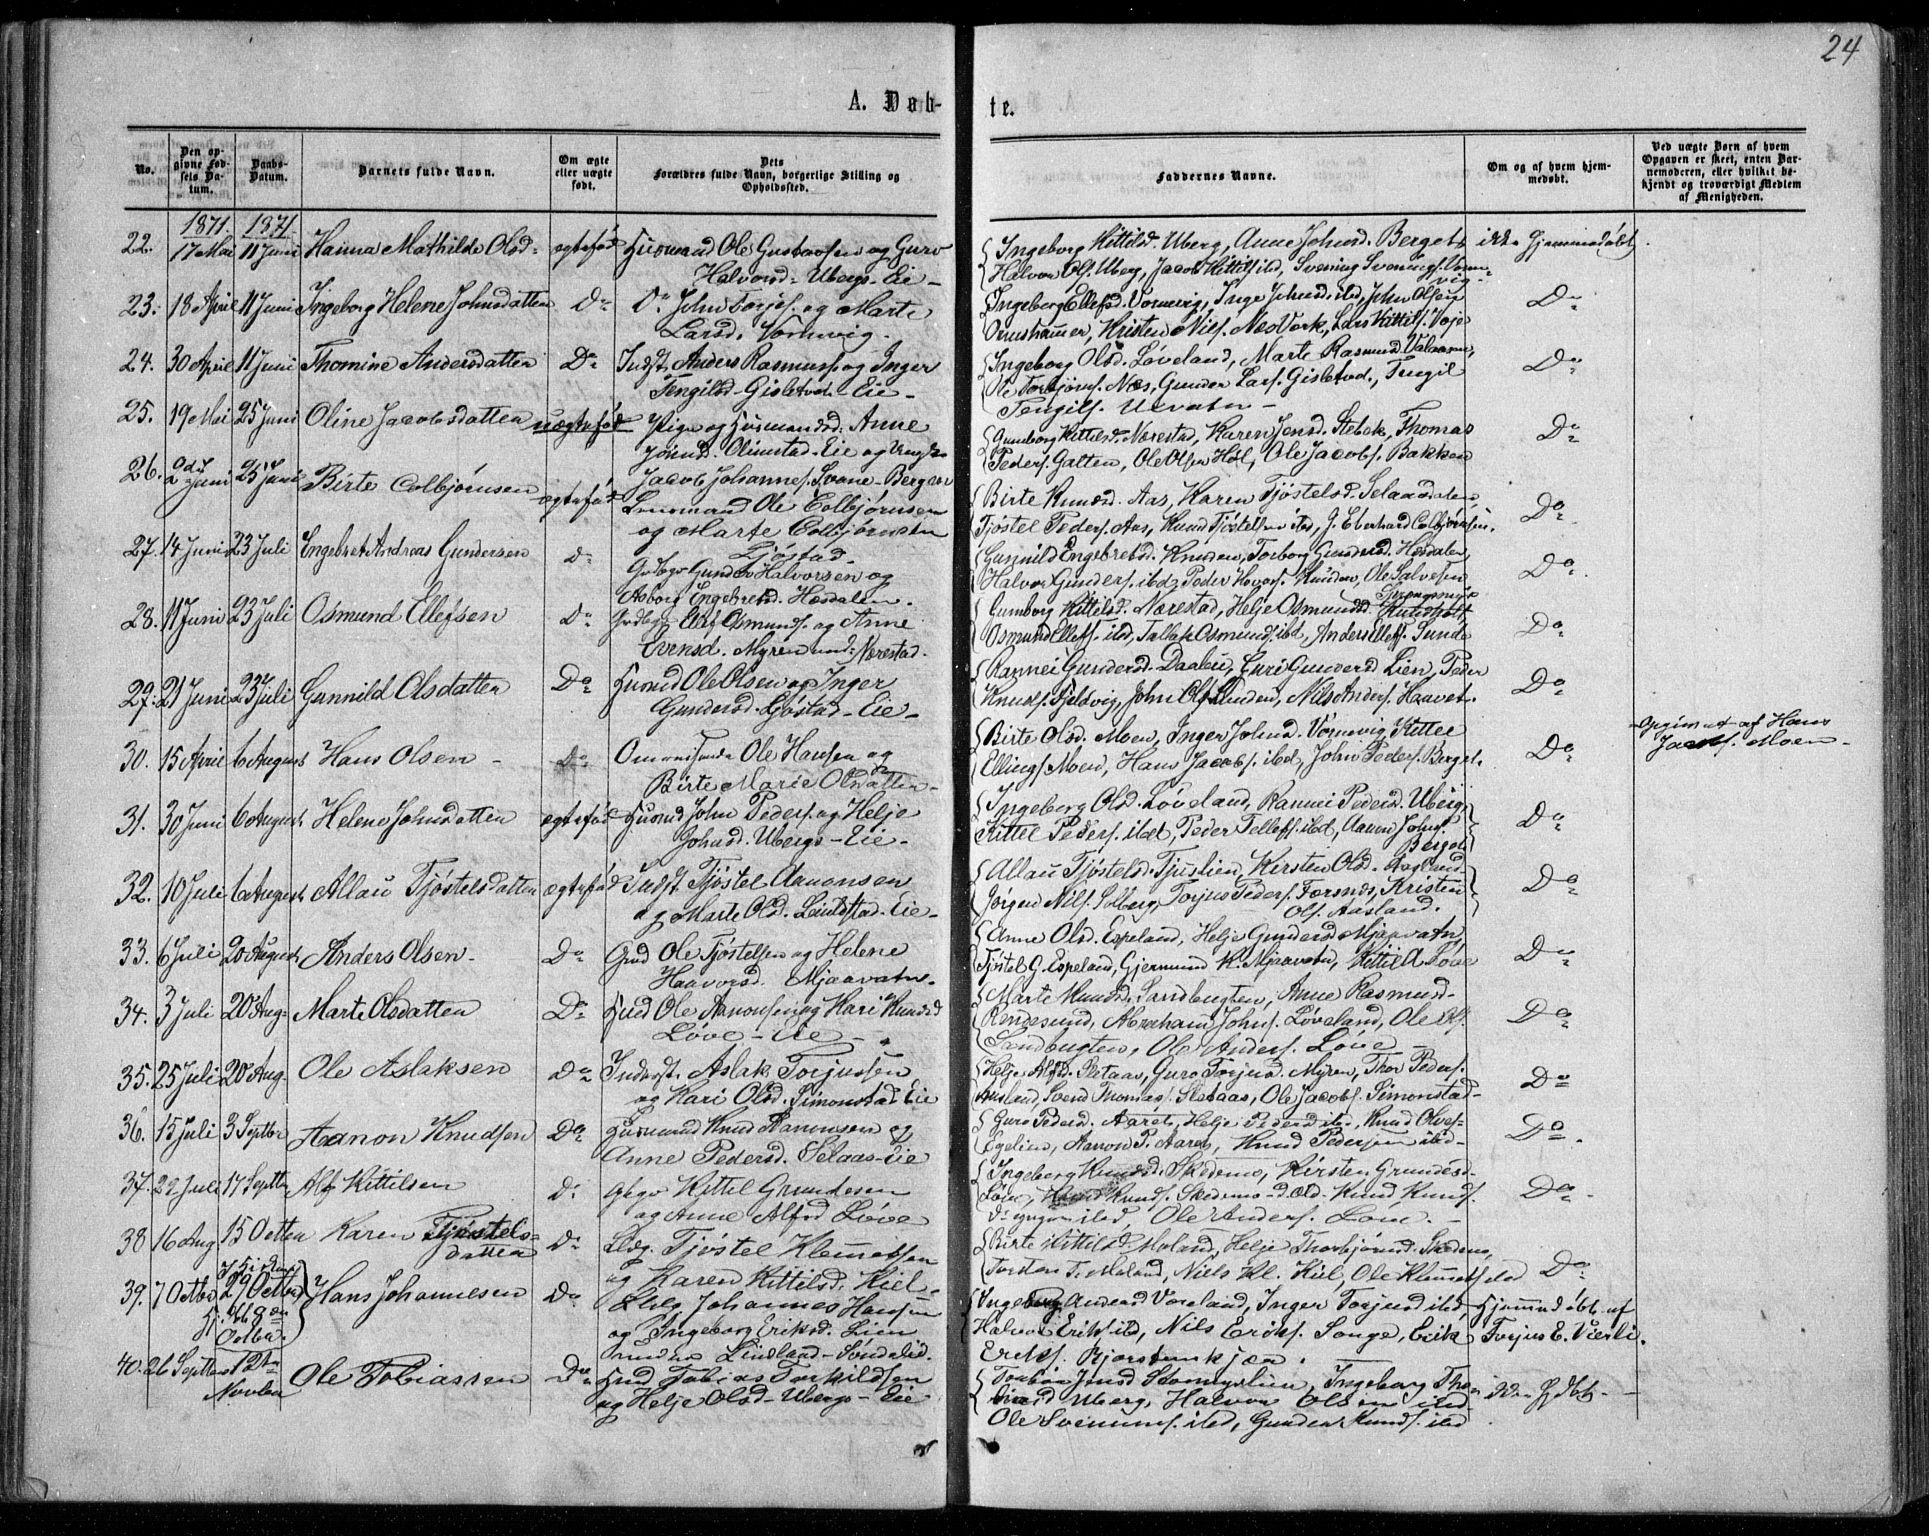 24
A. Døb-
te.
No.
Den op-
givne Fød-
sels Da-
tum.
Daabs-
Datum.
Barnets fulde Navn.
Om ægte
eller uægte
født.
Dets
Forældres fulde Navn, borgerlige Stilling og
Opholdssted.
Faddernes Navne.
Om og af hvem hjem-
medøbt.
Ved uægte Børn af hvem
Opgaven er skeet, enten Bar-
nemoderen, eller hvilket be-
kjendt og troværdigt Medlem
af Menigheden.
1871. 1871.
22. 17 Mai 11 Juni Hanna Mathilde Olsd. ægtefød Husmand Ole Gustavsen og Guro
Halvorsd. Ubergs-Eie-
Ingeborg Kittilsd. Uberg, Anne Johnsd. Berget, ikke hjemmedøbt
Halvor Ols. Uberg, Jacob Kittils. ibd, Svening Svenings. Vorm-
vig.
23. 18 April 11 Juni Ingeborg Helene Johnsdatter Do Do John Torjs. og Marte
Larsd. Vormvig.
Ingeborg Ellefsd. Vormvig, Inge Johnsd. ibd, John Olsen Do
Ormshammer, Kristen Nils. Næs Værk, Lars Kittils. Veje
24. 30 April 11 Juni Thomine Andersdatter Do Indst. Anders Rasmuss. og Inger
Tengilsd. Gislestad-Eie-
Ingeborg Olsd. Løveland, Marte Rasmusd. Valaaen, Do
Ole Torbjørns. Næs, Gunder Lars. Gislestad, Tengil
Tengils. Urvatn-
25. 19 Mai 25 Juni Oline Jacobsdatter uægtefød Pige og Husmandsd. Anne
Jensd. Olimstad-Eie og Ungk.
Jacob Johannes. Svane-Bergene
Gumborg Kittilsd. Nærestad, Karen Jensd. Stebek, Thomas Do
Peders. Galten, Ole Olsen Høl, Ole Jacobs. Bakken
26. 2 Juni 25 Juni Birte Colbjørnsen ægtefød Lensmand Ole Colbjørnsen
og Marte Colbjørnsen
Ljøstad-
Birte Knudsd. Aas, Karen Tjøstelsd. Selaasdalen, Do
Tjøstel Peders. Aas, Knud Tjøstelsen ibd, J. Eberhard Colbjørnsen.
27. 14 Juni 23 Juli Engebret Andreas Gundersen Do Gunder Halvorsen og
Aaborg Engebretsd. Hæsdalen.
Gunnild Engebretsd. Knuden, Torborg Gundersd. Hæsdalen, Do
Halvor Gunders. ibd, Peder Hovors. Knuden, Ole Salvesen
28. 11 Juni 23 Juli Osmund Ellefsen Do Ellef Osmunds. og Anne
Evensd. Myren und. Nærestad.
Gumborg Kittilsd. Nærestad, Helje Osmundsd. Do
Osmund Ellefs. ibd, Tallak Osmunds. ibd, Anders Ellefs. Sunde
29. 21 Juni 23 Juli Gunnild Olsdatter Do Husmd Ole Olsen og Inger
Gundersd. Ljøstad-Eie-
Rannei Gundersd. Daalen, Guri Gundersd. Lien, Peder Do
Knuds. Fjeldvig, John Ols. Knuden, Nils Anders. Haavet.
30. 15 April 6 August Hans Olsen Do Ole Hansen og
Birte Marie Olsdatter-
Birte Olsd. Moen, Inger Johnsd. Vormvig, Kittel Do
Ellings. Moen, Hans Jacobs. ibd, John Peders. Berget.
Opgivet af Hans
Jacobs. Moen-
31. 30 Juni 6 August Helene Johnsdatter ægtefød Husmd John Peders. og Helje
Johnsd. Ubergs-Eie-
Ingeborg Olsd. Løveland, Rannei Pedersd. Uberg, Do
Kittel Peders. ibdt, Peder Tellefs. ibd, Aanon Johns.
Berget
32. 10 Juli 6 August Allau Tjøstelsdatter ægtefød Indst. Tjøstel Aanonsen
og Marte Olsd. Lindstad-Eie-
Allau Tjøstelsd. Tjuslien, Kirsten Olsd. Do
Jørgen Nils. Solberg, Torjus Peders. Forsnæs, Kristen
Ols. Aasland.
33. 6 Juli 20 August Anders Olsen- Do Gmd Ole Tjøstelsen og Helene
Haavorsd. Mjaavatn.
Anne Olsd. Espeland, Helje Gundersd. Mjaavatn, Do
Tjøstel G. Espeland, Gjermund K. Mjaavatn, Kittil A. Løve
34. 3 Juli 20 Aug- Marte Olsdatter Do Husmd Ole Aanonsen og Kari Knudsd
Løve-Eie-
Marte Knudsd. Sandbugten, Anne Rasmusd. Do
Rendesund, Abraham Johns. Løveland, Ole Ols.
Sandbugten, Ole Anders. Løve-
35. 25 Juli 20 Aug- Ole Aslaksen Do Inderst. Aslak Torjussen
og Kari Olsd. Simonstad-Eie
Helje Alfsd. Sletaas, Guro Torjusd. Myren, Thor Peders. Do
Aasland, Svend Thomas. Sletaas, Ole Jacobs. Simonstad-
36. 15 Juli 3 Septbr Aanon Knudsen Do Husmand Knud Aanonsen og
Anne Pedersd. Selaas-Eie
Guro Pedersd. Aaret, Helje Pedersd. ibd, Knud Olves- Do
Egelien, Aanon P. Aaret, Knud Pedersen ibd-
37. 22 Juli 17 Septbr Alf Kittilsen Do Kittel Grundesen
og Anne Alfsd Løve
Ingeborg Knudsd. Skedemo, Kirsten Grundesd. Do
Løve, Knuds. Skedemo-d.æld-Knud Knuds.
D. yngre ibd, Ole Anders. Løve.-
38 16 Aug 15 Octbr Karen Tjøstels-
datter Do Tjøstel Klemetsen
og Karen Kittilsd. Kiel-
Birte Kittilsd. Moland, Helje Thorbjørnsd. Skedemo, Do
Torsten T. Moland, Niels Kl. Kiel, Ole Klemets. ibd
39. 7 Octbr 29 Octbr Hans Johannesen Do Johannes Hansen
Octbr.
og Ingeborg Eriksd. Lien
under Lindland-Søndeled.
Ingeborg Andersd. Voreland, Inger Torjusd ibd, Hjemmedøbt af
Halvor Eriks. ibd, Nils Eriks. Songe, Erik Torjus E. Vierli.
Eriks. Bjorstenkjær.
40. 26 Septbr 12te Ole Tobiassen Do Husmd Tobias Torkildsen
Novbr
og Helje Olsd-Ubergs-Eie
Torbor Jensd Stamyrlien, Ingeborg Tho-
Uberg, Halvor Olsen ibd-
Ole Svenums. ibd, Gunder Knuds. ibd